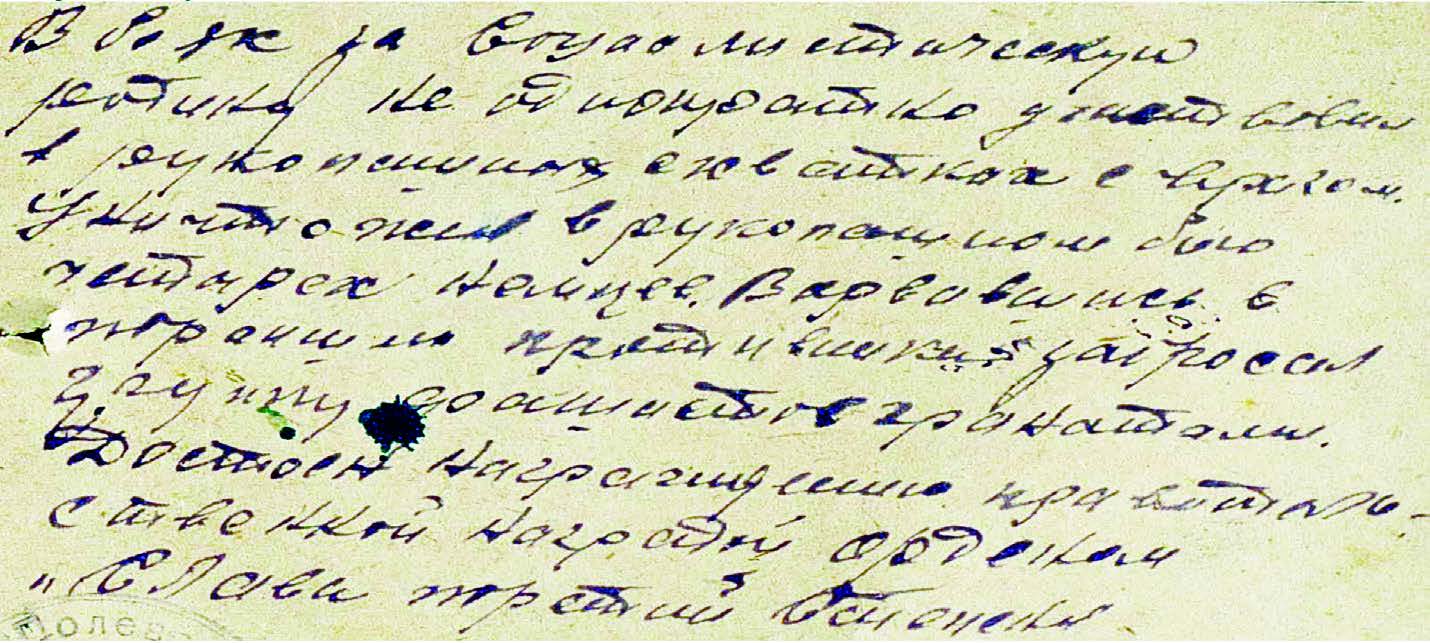 В боях за Социалистическую
родину не однократно участвовал
в рукопашных схватках с врагом.
Уничтожил в рукопашном бою
четырех немцев. Варвавшись в
траншею противника забросал
группу фашистов гранатами.
Достоен награждению правитель-
ственной наградой орденом
"Славы третий степени
Полев